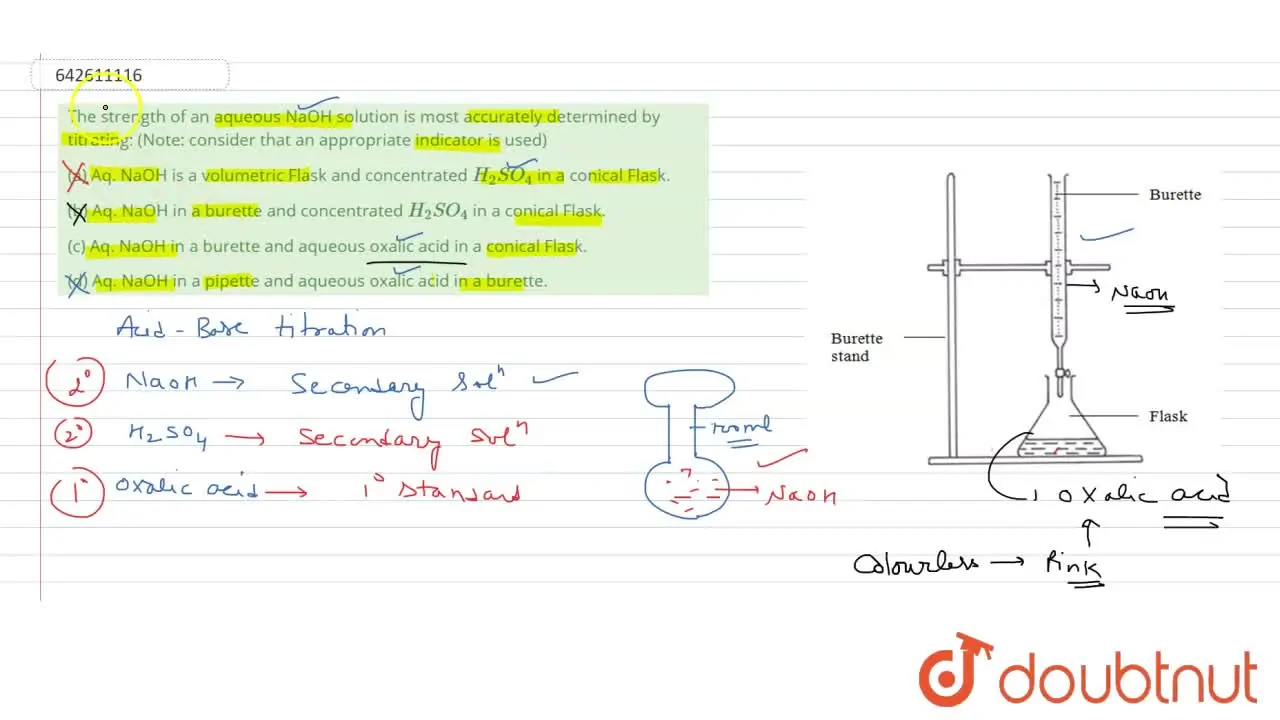 642611116
The strength of an aqueous NaOH solution is most accurately determined by
titrating: (Note: consider that an appropriate indicator is used)
(a) Aq. NaOH is a volumetric Flask and concentrated H₂SO₄ in a conical Flask.
(b) Aq. NaOH in a burette and concentrated H₂SO₄ in a conical Flask.
(c) Aq. NaOH in a burette and aqueous oxalic acid in a conical Flask.
(d) Aq. NaOH in a pipette and aqueous oxalic acid in a burette.
Acid - Base titration
2° NaOH → Secondary Solⁿ
2° H₂SO₄ → Secondary Solⁿ
1° Oxalic acid → 1° Standard
100ml
NaOH
Burette
NaOH
Burette
stand
Flask
Oxalic acid
Colourless → Pink
doubtnut